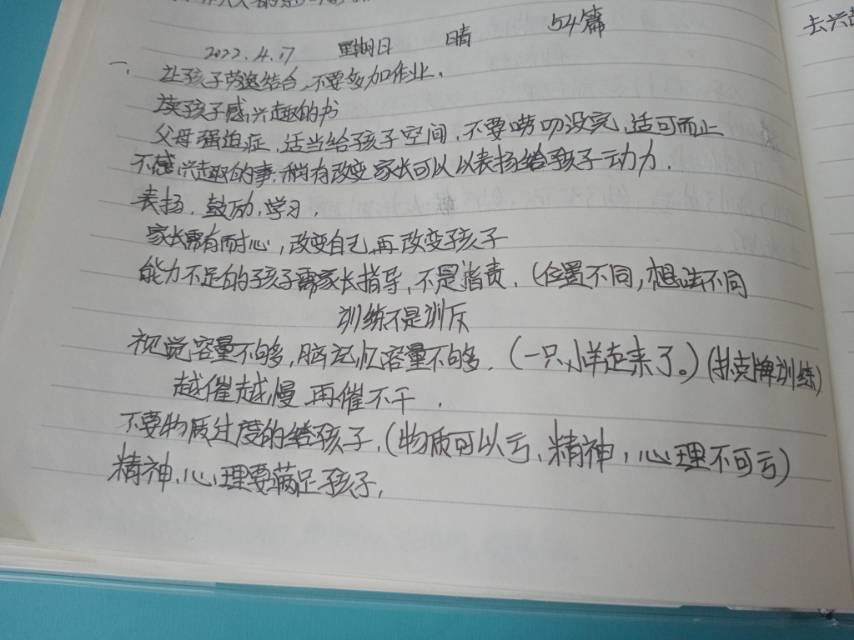 2022.4.17 星期日 晴 54篇
一、让孩子劳逸结合,不要多加作业.
读孩子感兴趣的书
父母强迫症,适当给孩子空间,不要唠叨没完,适可而止
不感兴趣的事.稍有改变家长可以以表扬给孩子动力.
表扬.鼓励.学习.
家长需有耐心,改变自己,再改变孩子
能力不足的孩子需家长指导,不是指责.(位置不同,想法不同
训练不是训斥
视觉容量不够,脑记忆容量不够.(一只小羊走来了。)(扑克牌训练)
越催越慢,再催不干.
不要物质过度的给孩子,(物质可以亏、精神,心理不可亏)
精神、心理要满足孩子,
去兴